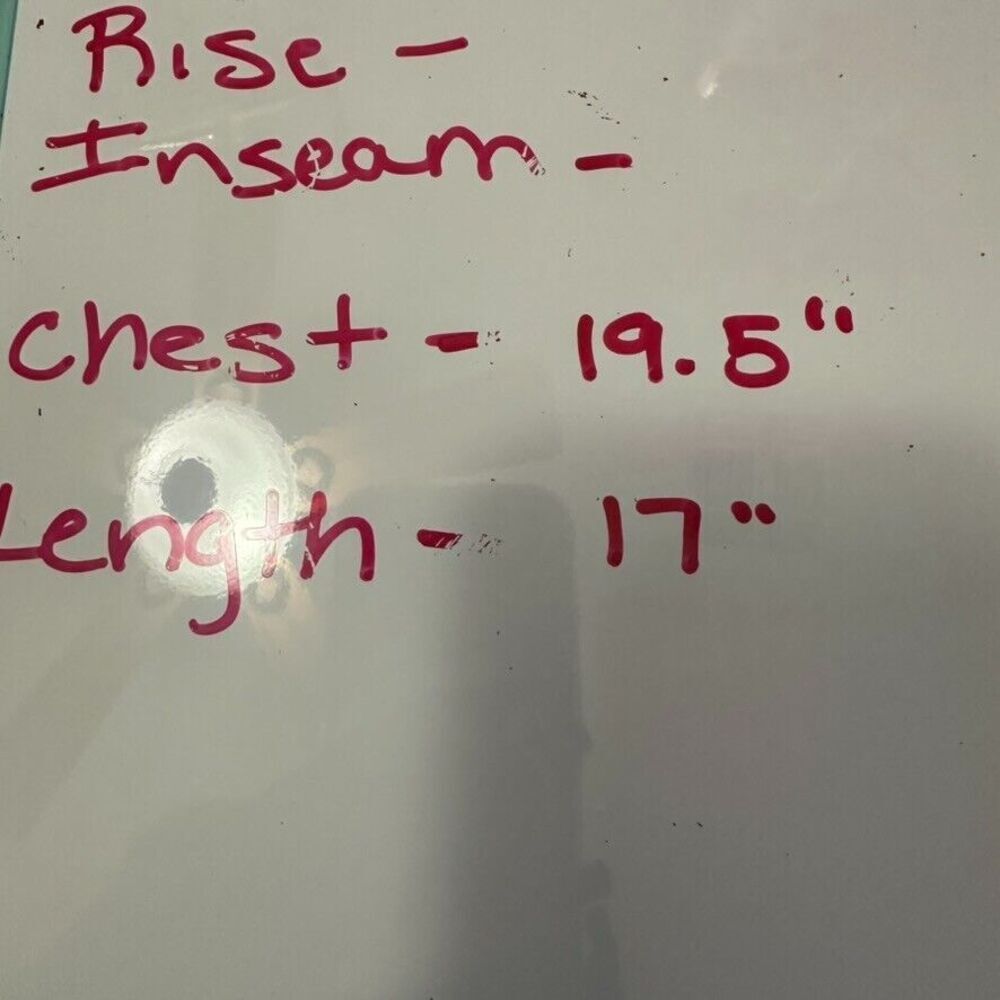 Rise -
Inseam -
Chest - 19.5"
Length - 17"